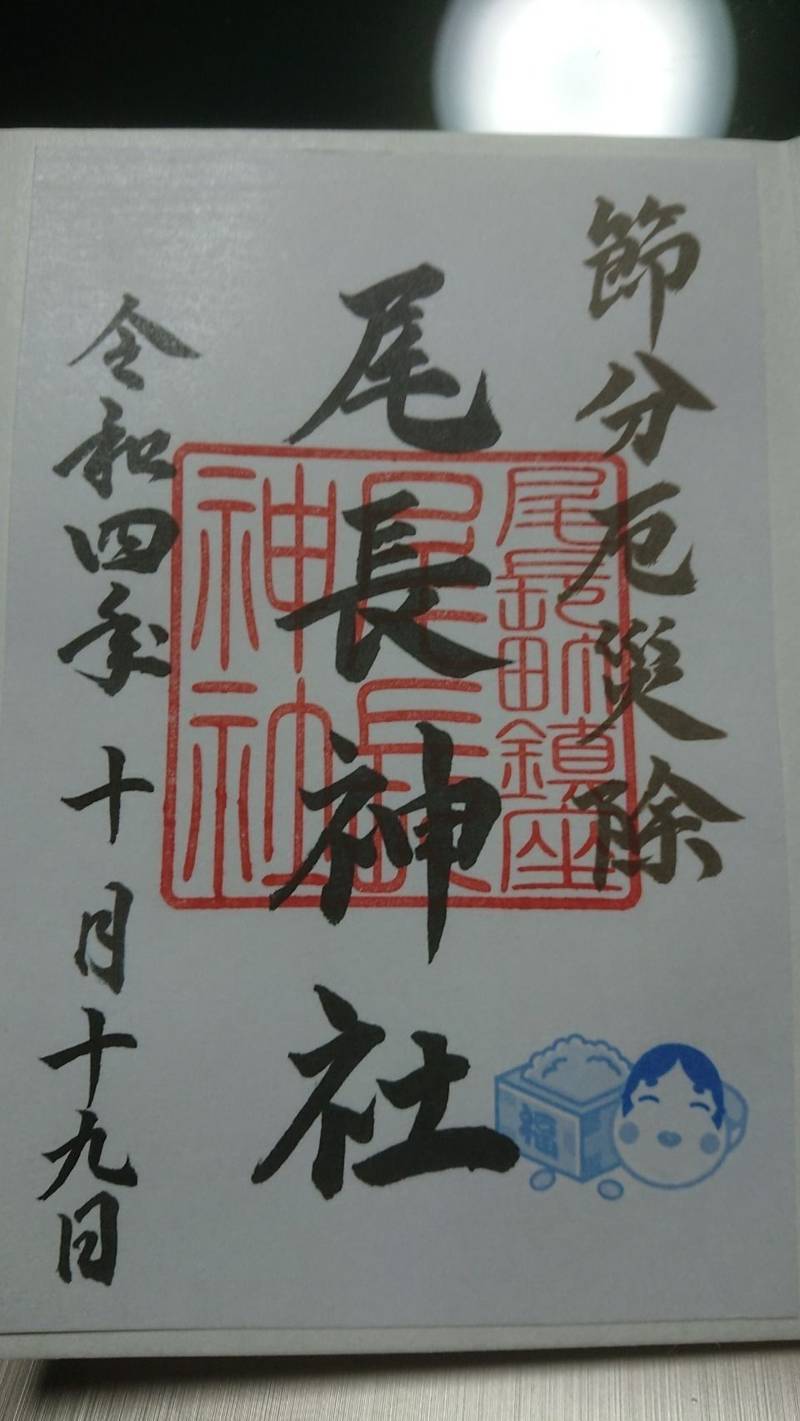 節分厄災除
尾長神社
令和四年十月十九日
尾長町鎮座
尾長
神社
福